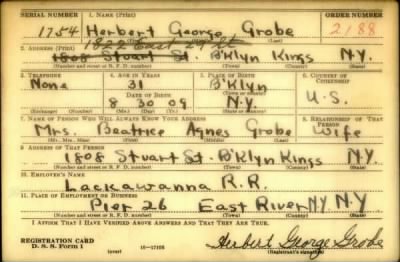 SERIAL NUMBER 1. NAME (Print) ORDER NUMBER
1754 Herbert George Grobe 2188
(First) (Middle) (Last)
1822 East 29 St
2. ADDRESS (Print)
1808 Stuart St. B'Klyn Kings N.Y.
(Number and street or R. F. D. number) (Town) (County) (State)
3. TELEPHONE 4. AGE IN YEARS 5. PLACE OF BIRTH 6. COUNTRY OF CITIZENSHIP
None 31 B'Klyn
DATE OF BIRTH (Town or county)
8 30 09 N.Y. U.S.
(Exchange) (Number) (Mo.) (Day) (Yr.) (State or country)
7. NAME OF PERSON WHO WILL ALWAYS KNOW YOUR ADDRESS 8. RELATIONSHIP OF THAT PERSON
Mrs. Beatrice Agnes Grobe Wife
(Mr., Mrs., Miss) (First) (Middle) (Last)
9. ADDRESS OF THAT PERSON
1808 Stuart St. B'Klyn Kings N.Y.
(Number and street or R. F. D. number) (Town) (County) (State)
10. EMPLOYER'S NAME
Lackawanna R.R.
11. PLACE OF EMPLOYMENT OR BUSINESS
Pier 26 East River N.Y. N.Y.
(Number and street or R. F. D. number) (Town) (County) (State)
I AFFIRM THAT I HAVE VERIFIED ABOVE ANSWERS AND THAT THEY ARE TRUE.
REGISTRATION CARD
D. S. S. FORM 1 (over) 16-17105 Herbert George Grobe
(Registrant's signature)